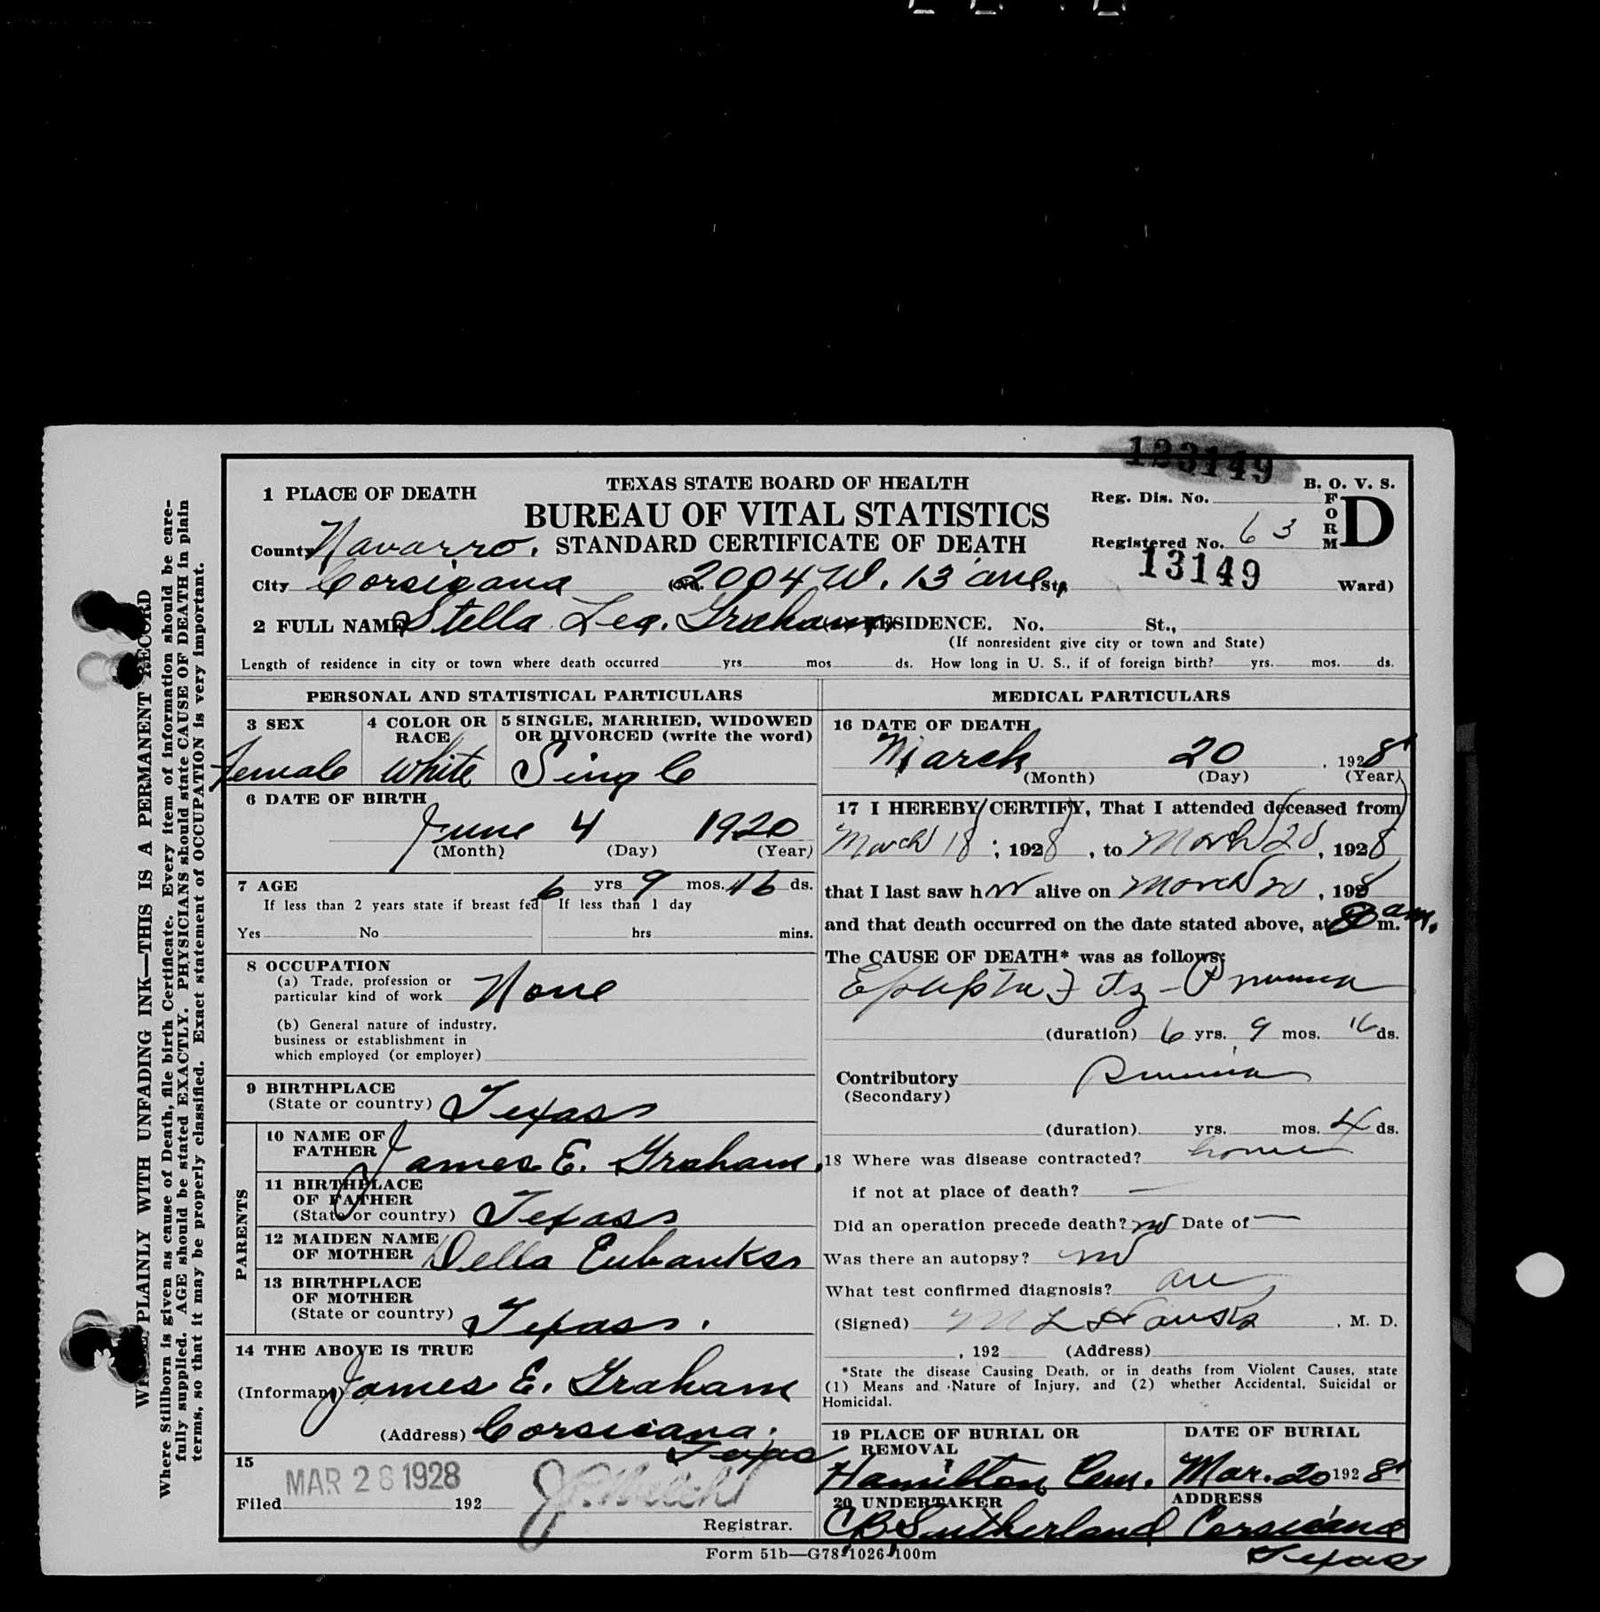 WRITE PLAINLY WITH UNFADING INK—THIS IS A PERMANENT RECORD
Where Stillborn is given as cause of Death, file birth Certificate. Every item of information should be care-
fully supplied. AGE should be stated EXACTLY. PHYSICIANS should state CAUSE OF DEATH in plain
terms, so that it may be properly classified. Exact statement of OCCUPATION is very important.
123149
TEXAS STATE BOARD OF HEALTH
B. O. V. S.
1 PLACE OF DEATH
Reg. Dis. No.
FORM D
BUREAU OF VITAL STATISTICS
County Navarro. STANDARD CERTIFICATE OF DEATH
Registered No. 63
13149
City Corsicana (No. 2004 W. 13 ave St., Ward)
2 FULL NAME Stella Lea. Graham RESIDENCE. No. St.,
(If nonresident give city or town and State)
Length of residence in city or town where death occurred yrs mos ds. How long in U. S., if of foreign birth? yrs. mos. ds.
PERSONAL AND STATISTICAL PARTICULARS
3 SEX
Female
4 COLOR OR RACE
White
5 SINGLE, MARRIED, WIDOWED
OR DIVORCED (write the word)
Single
6 DATE OF BIRTH
June 4 1920
(Month) (Day) (Year)
7 AGE 6 yrs 9 mos. 16 ds.
If less than 2 years state if breast fed If less than 1 day
Yes No hrs mins.
8 OCCUPATION
(a) Trade, profession or
particular kind of work None
(b) General nature of industry,
business or establishment in
which employed (or employer)
9 BIRTHPLACE
(State or country) Texas
PARENTS
10 NAME OF
FATHER James E. Graham.
11 BIRTHPLACE
OF FATHER
(State or country) Texas
12 MAIDEN NAME
OF MOTHER Della Eubanks
13 BIRTHPLACE
OF MOTHER
(State or country) Texas.
14 THE ABOVE IS TRUE
(Informant) James E. Graham
(Address) Corsicana.
Texas
15
Filed MAR 28 1928 192
Registrar.
MEDICAL PARTICULARS
16 DATE OF DEATH
March 20, 1928
(Month) (Day) (Year)
17 I HEREBY CERTIFY, That I attended deceased from
March 18, 1928, to March 20, 1928
that I last saw her alive on March 20, 1928
and that death occurred on the date stated above, at 8 am.
The CAUSE OF DEATH* was as follows:
(duration) 6 yrs. 9 mos. 16 ds.
Contributory
(Secondary)
(duration) yrs. mos. 4 ds.
18 Where was disease contracted? home
if not at place of death? —
Did an operation precede death? no Date of —
Was there an autopsy? no
What test confirmed diagnosis?
(Signed) M. D.
, 192 (Address)
*State the disease Causing Death, or in deaths from Violent Causes, state
(1) Means and Nature of Injury, and (2) whether Accidental, Suicidal or
Homicidal.
19 PLACE OF BURIAL OR
REMOVAL
Hamilton Cem.
DATE OF BURIAL
Mar. 20 1928
20 UNDERTAKER
C B Sutherland
ADDRESS
Corsicana
Texas
Form 51b—G78-1026-100m